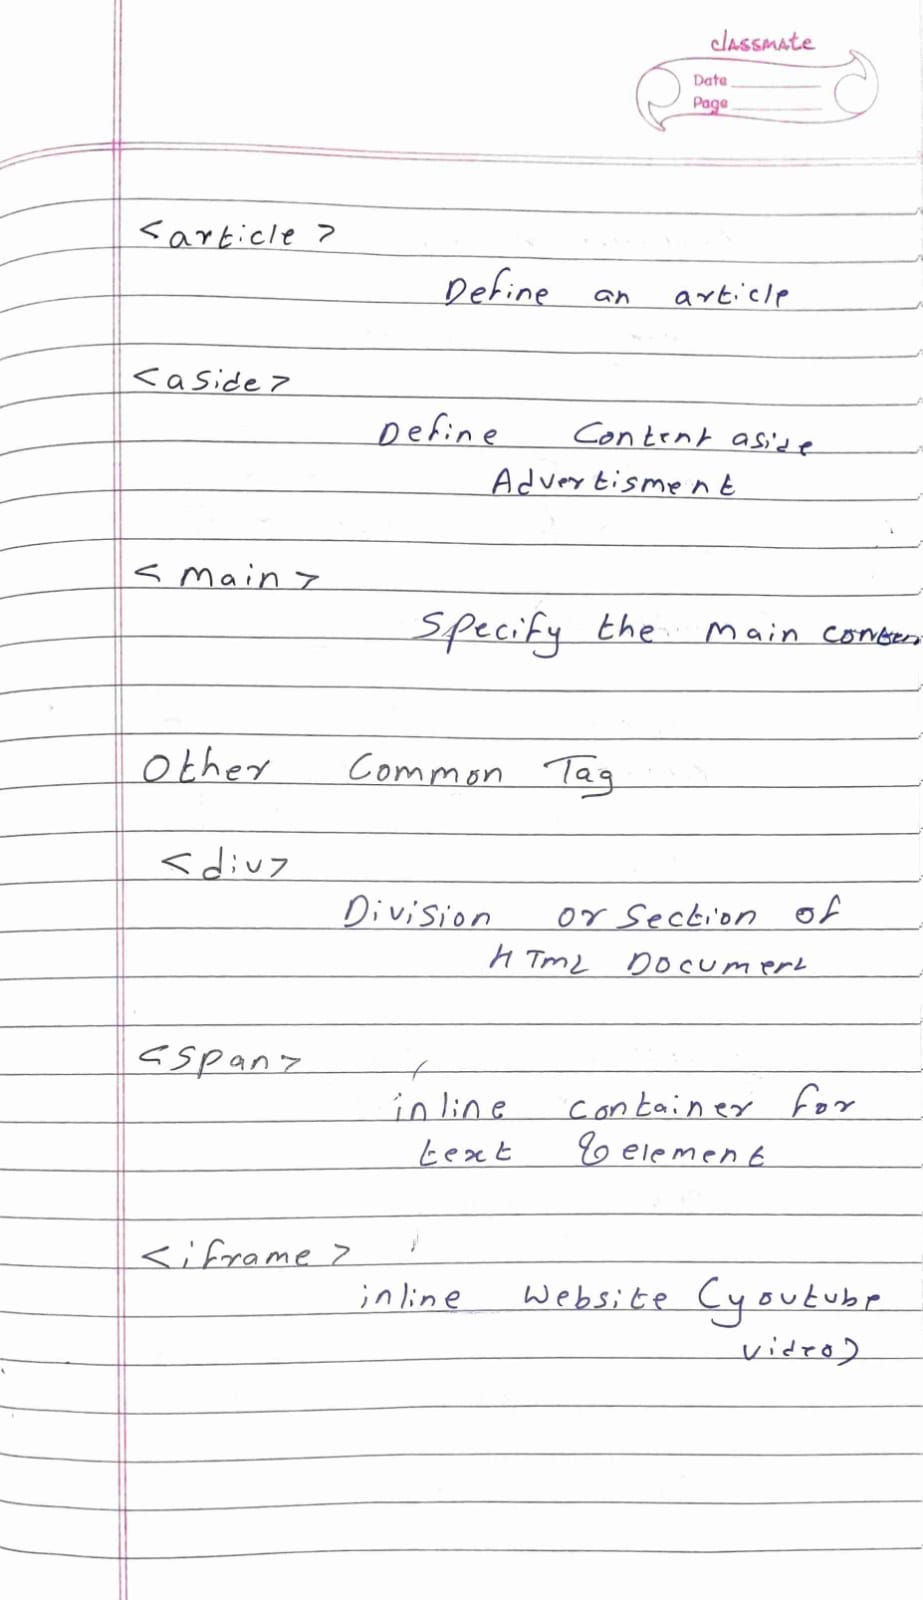 classmate
Date
Page
<article>
Define an article
<aside>
Define Content aside
Advertisment
<main>
Specify the main conten
Other Common Tag
<div>
Division or section of
HTML Document
<span>
inline container for
text & element
<iframe>
inline website (youtube
video)